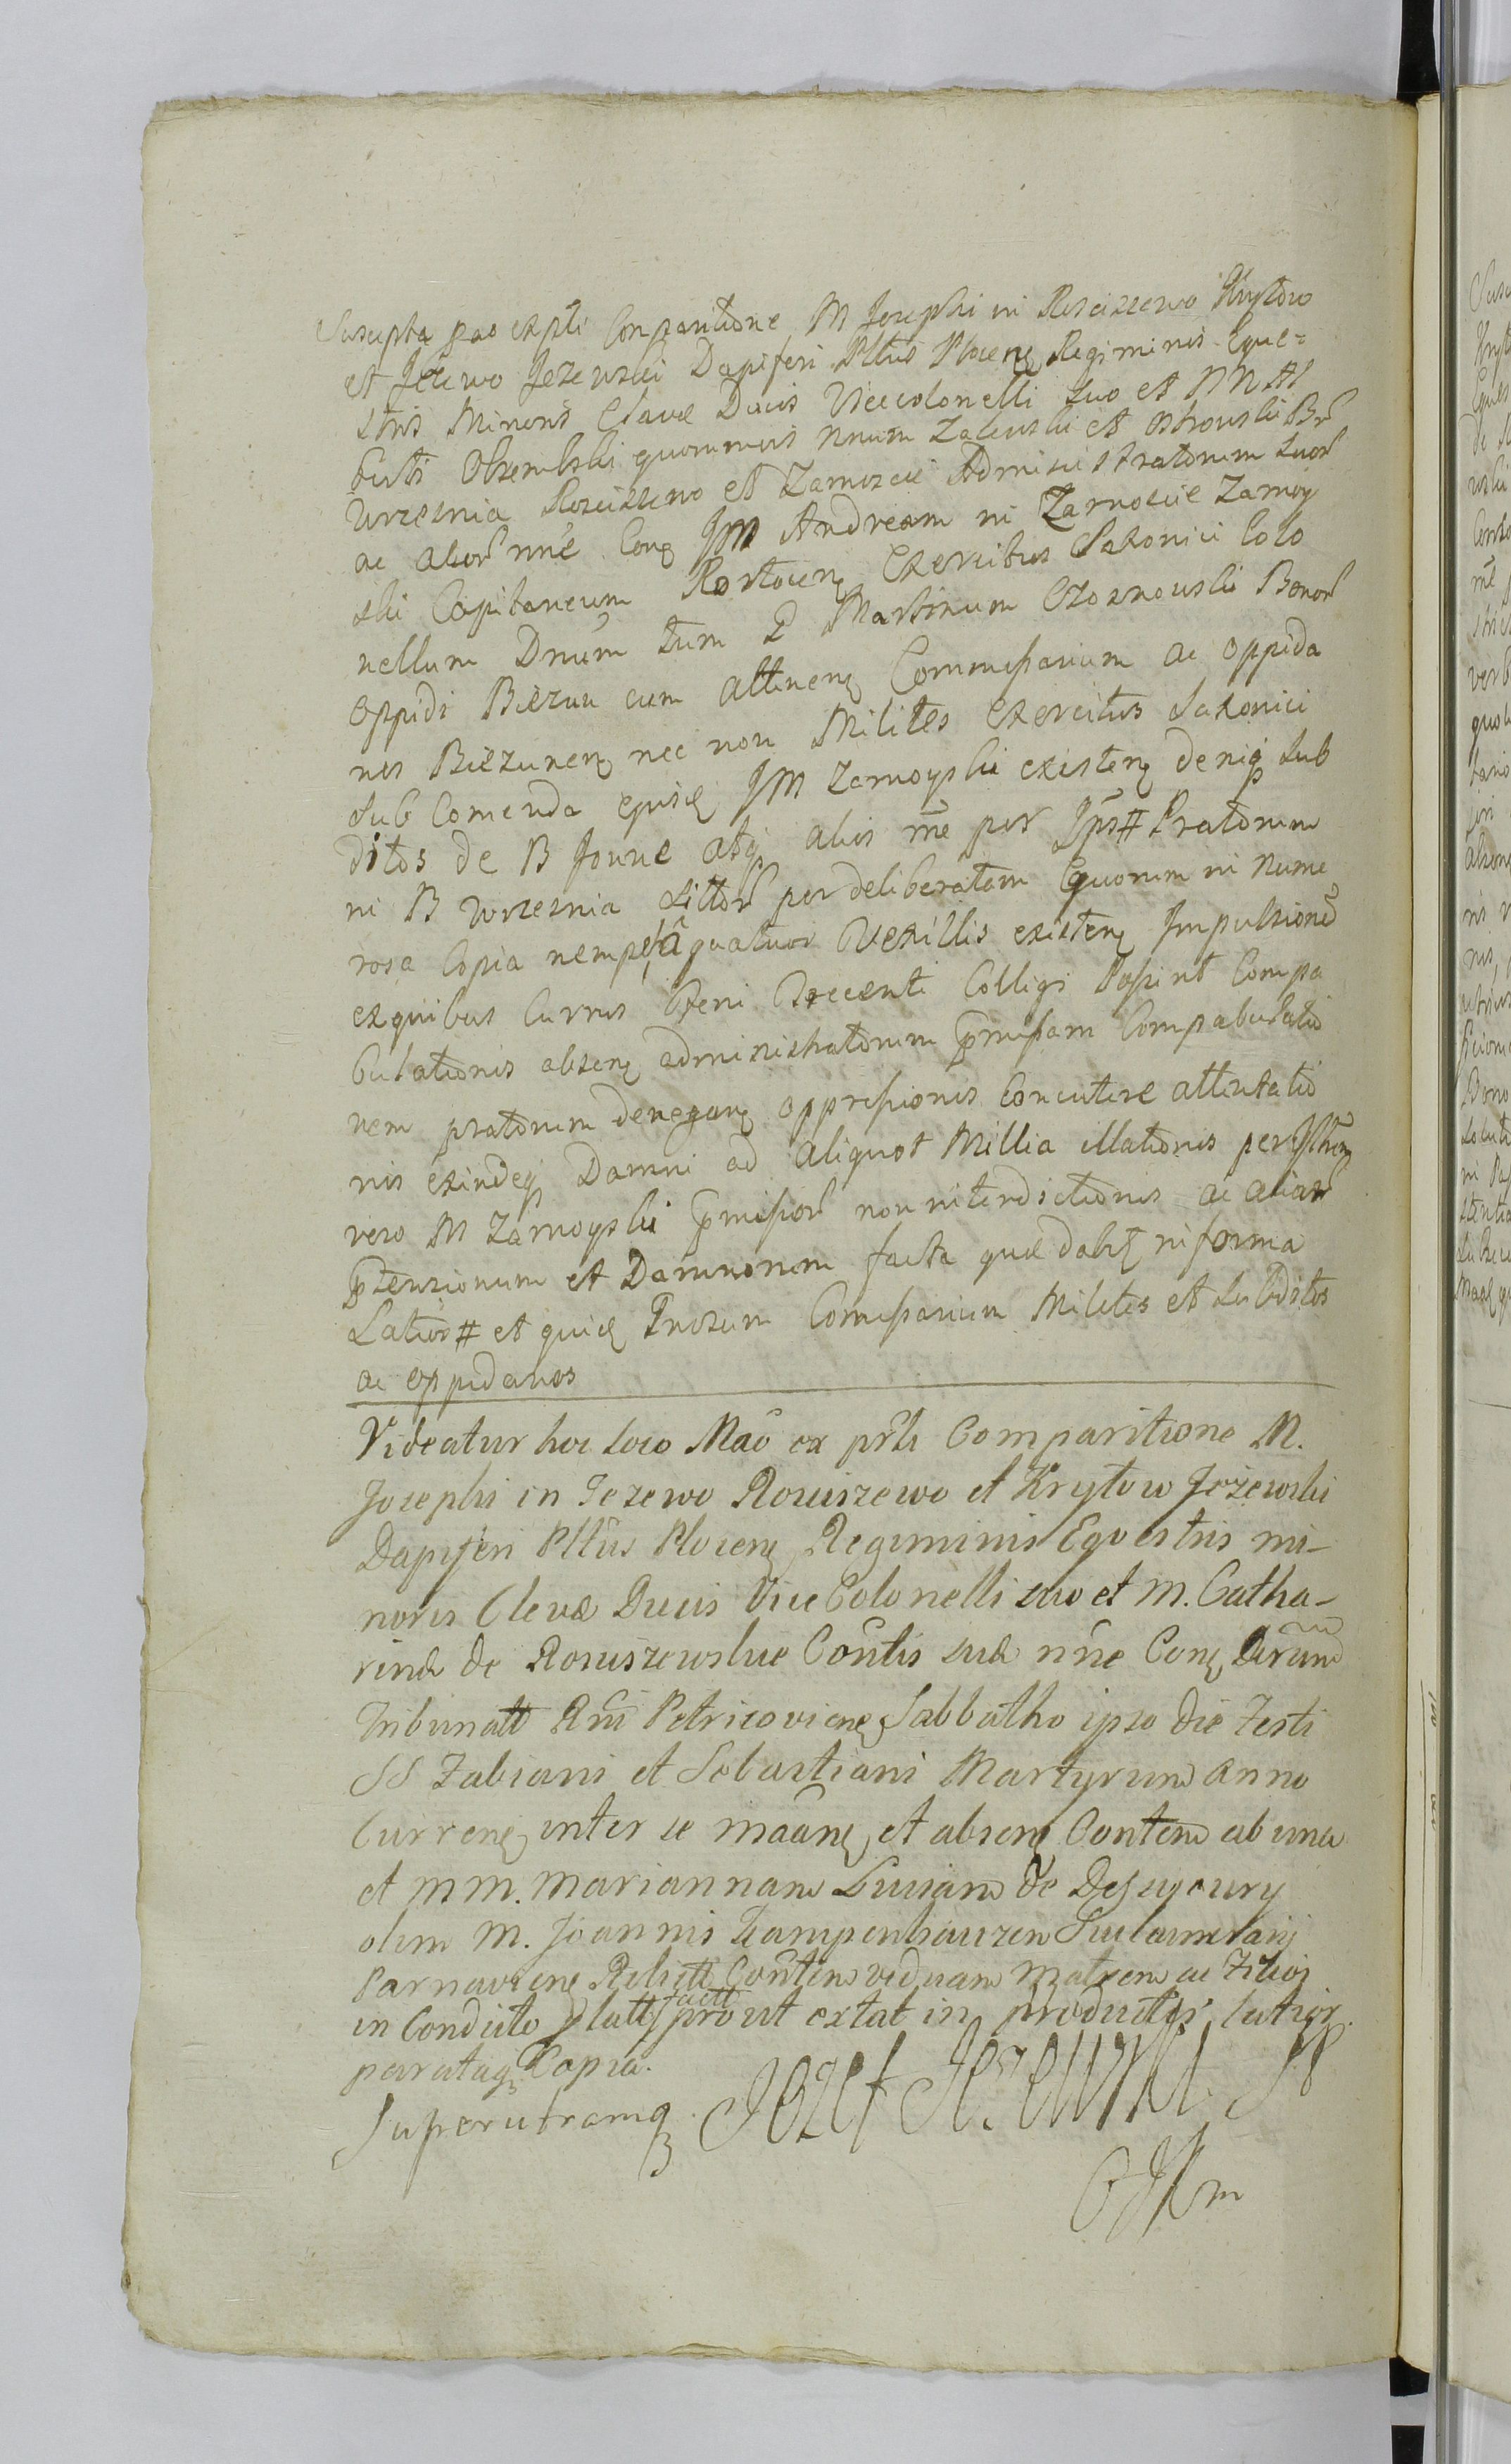 Suscepta pao expti Comparitione M Josephi in Rosciszewo Krytow
et Jeżewo Jezewski Dapiferi Pltus Plocenę Regiminis Eque=
stris Minoris Clavæ Ducis Vicecolonelli suo et MM Al
berti Obrembski quorumvis Unum Zalewski et Ostrowski Br
Wrzesnia Rosciszewo et Zamoscie Administratorum suor
ac alior nne Conę JM Andream in Zamoscie Zamoy
ski Capitaneum Rostocenę Exercitus Saxonici Colo
nellum Dnum tum D Martinum Czosnowski Bonor
oppidi Biezun cum attinenę Commissarium ac oppida
nos Biezunenę nec non Milites exercitus Saxonici
Sub Comenda ejusdę JM Zamoyski existenę deniq sub
ditos de B Jonne atq alios nne per Ips# Pratorum
in B Wrzesnia sittor per deliberatam Equorum in nume
rosa Copia nempe a quatuor Vexillis existenę Impulsione
ex quibus Currus Feni Ducenti Colligi Possint Compa
bulationis absenę administratorum pmissam Compabulatio
nem pratorum deneganę oppressionis Concutere attentatio
nis exindeq Damni ad aliquot Millia illationis per Isthm
vero M Zamoyski pmissor non interdictionis ac aliar
ptensionum et Damnorum facta quæ dabt in forma
Latior# et quidę Pnosum Comissarium Milites et Subditos
ac oppidanos
Videatur hoc loco Mao ex prti Comparitione M.
Josephi in Jezewo Rosciszewo et Krytow Jeżewski
Dapiferi Pltus Plocenę Regiminis Equestris mi-
noris Clevæ Ducis Vice Colonelli suo et M. Catha-
rinæ de Rosciszewskie Contis suæ nne Conę
Tribunatt Rni Petricovienę Sabbatho ipso die Festi
SS Fabiani et Sebastiani Martyrum Anno
Currenę inter se maanę et absenę Contem ab una
et MM. Mariannam Luviam de
olim M. Joannis Kampenhauzen Succamerarij
Parnavienę Relictæ Contem viduam Matrem ac Filios
in Condicto Platt factt prout extat in productis latior.
parataq Copia.
Super utramq. Jozef Jezewski
mp